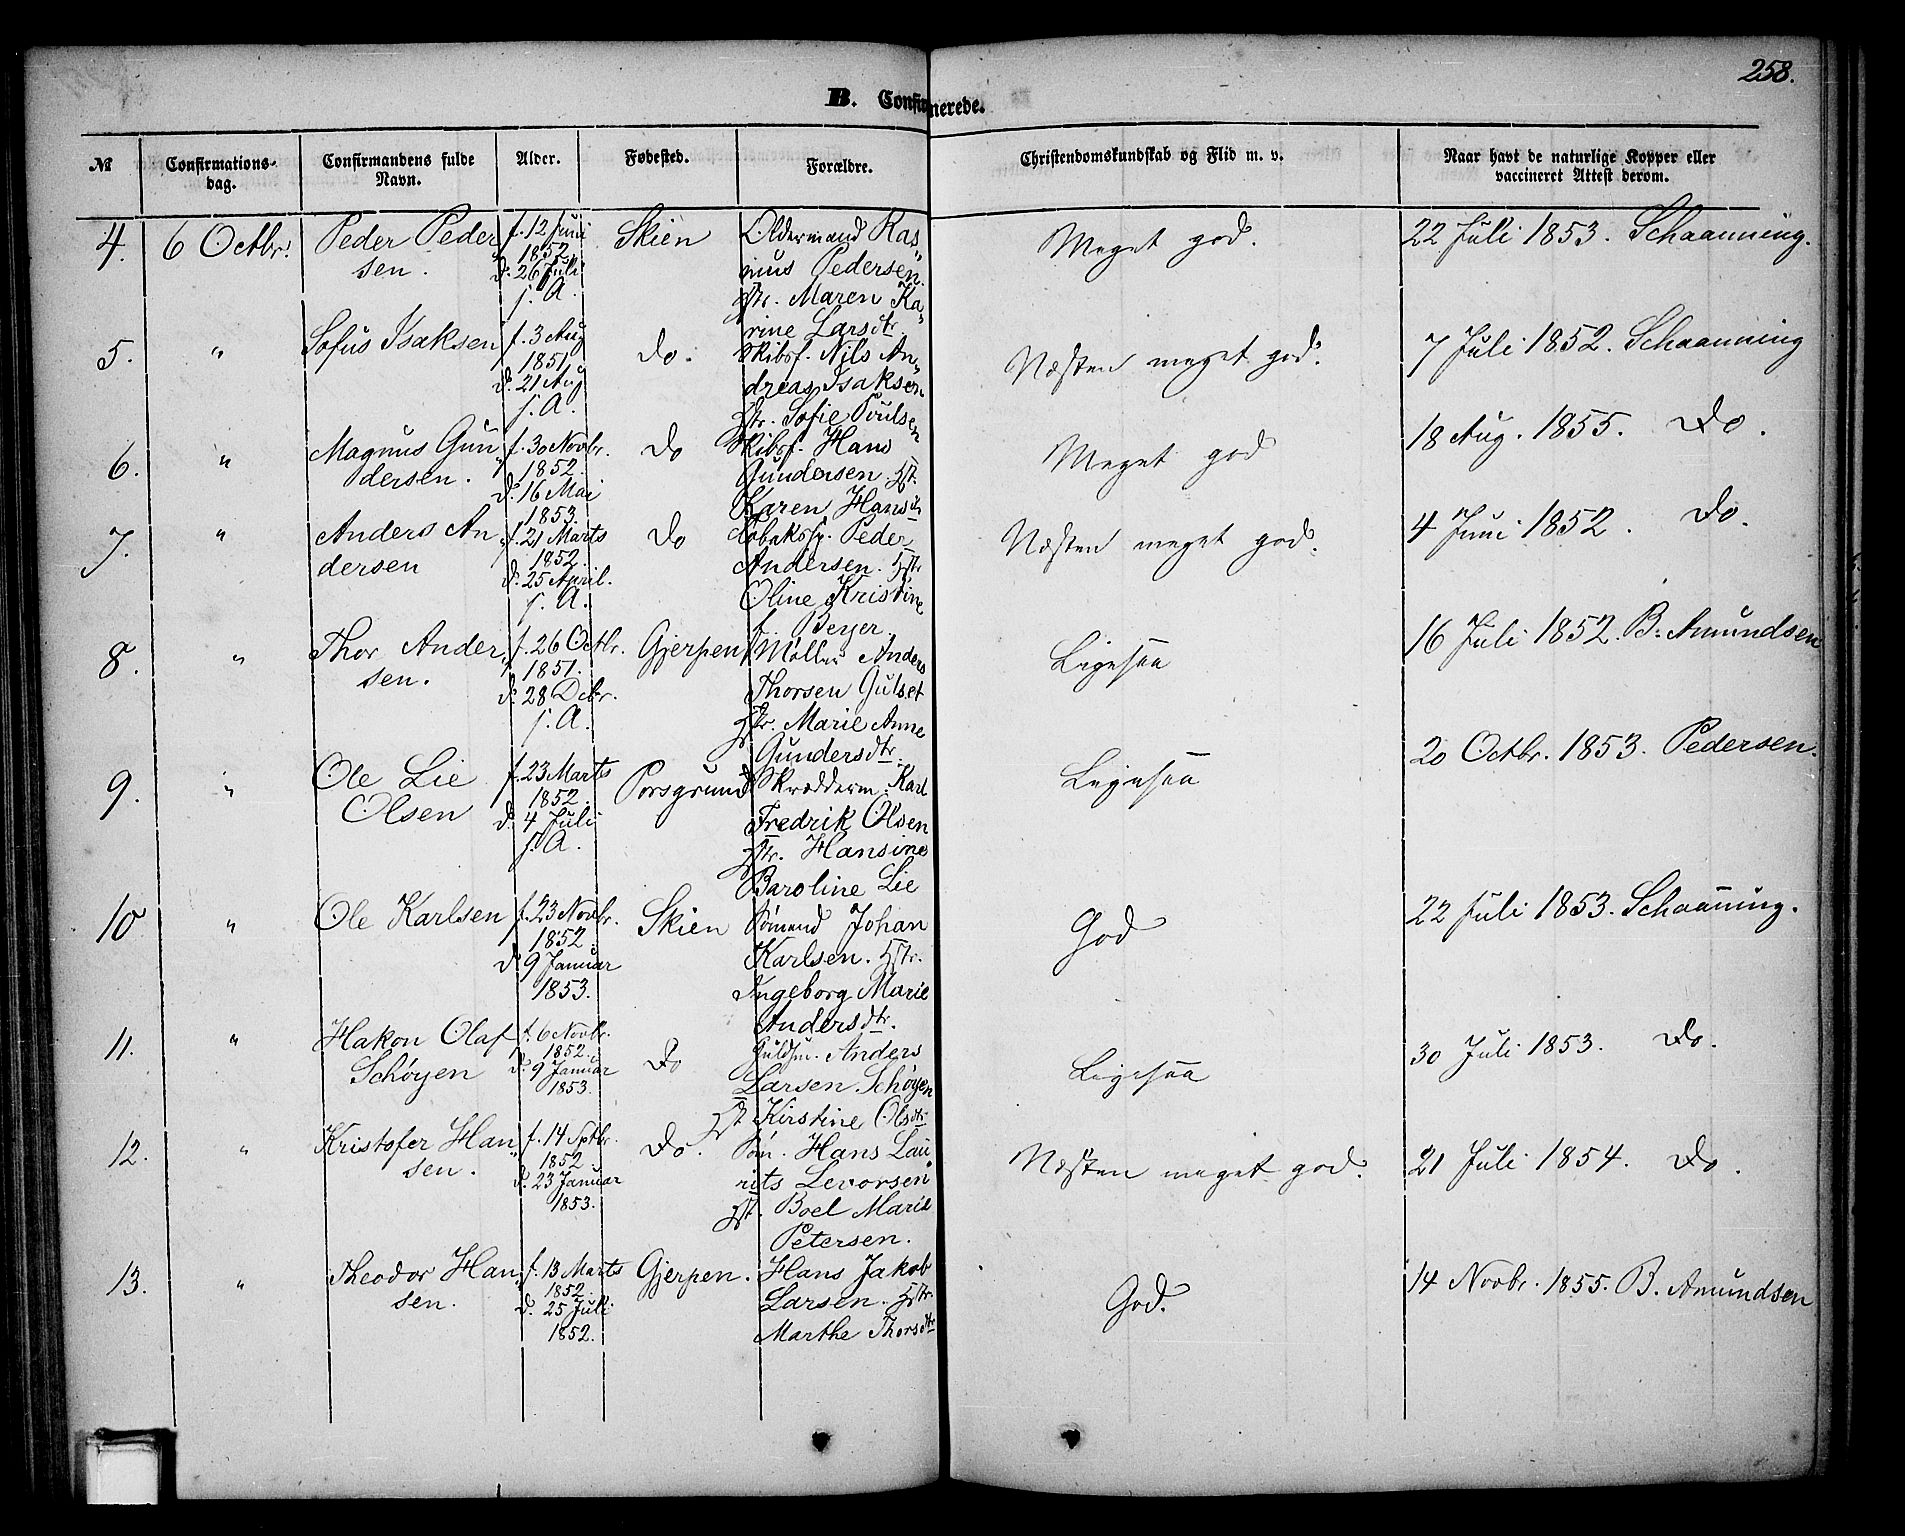 258.
B. Confirmerede.
№ Confirmations-dag. Confirmandens fulde Navn. Alder. Fødested. Forældre. Christendomskundskab og Flid m. v. Naar havt de naturlige Kopper eller vaccineret Attest derom.
4. 6 Octbr. Peder Peder f. 12 Juni Skien Oldermand Ras„ Meget god. 22 Juli 1853. Schaanning.
sen. 1852. mus Pedersen.
d. 26 Juli Hstr. Maren Ka„
s. A. rine Larsdtr.
5. " Sofus Isaksen f. 3 Aug do. Skibsf. Nils An„ Næsten meget god. 7 Juli 1852. Schaanning
1851 dreas Isaksen
d. 21 Aug Hstr. Sofie Poulsen
s. A.
6. " Magnus Gun„ f. 30 Novbr. do Skibsf. Hans Meget god 18 Aug. 1855. do.
dersen. 1852. Gundersen. Hstr.
d. 16 Mai Karen Hansdtr
1853.
7. " Anders An„ f. 21 Marts do Tobakssp. Peder Næsten meget god. 4 Juni 1852. do.
dersen 1852. Andersen. Hstr
d. 25 April. Oline Kristine
s. A. f. Beyer.
8. " Thor Ander„ f. 26 Octbr. Gjerpen Møller Anders Ligesaa 16 Juli 1852. B. Amundsen
sen. 1851. Thorsen Gulset
d. 28 Debr. Hstr. Marie Anne
s. A. Gundersdtr.
9. " Ole Lie f. 23 Marts Porsgrund Skrædderm. Karl Ligesaa 20 Octbr. 1853. Pedersen.
Olsen 1852. Fredrik Olsen
d. 4 Juli Hstr. Hansine
s. A. Baroline Lie
10 " Ole Karlsen f. 23 Novbr. Skien Sømand Johan God 22 Juli 1853. Schaaning.
1852. Karlsen. Hstr.
d. 9 Januar Ingeborg Marie
1853. Andersdtr.
11. " Hakon Olaf f. 6 Novbr. do Guldsm. Anders Ligesaa 30 Juli 1853. do.
Schøyen 1852. Larsen Schøyen
d. 9 Januar Hst Kirstine Olsdtr
1853.
12. " Kristofer Han„ f. 14 Sptbr. do. Søm. Hans Lau„ Næsten meget god. 21 Juli 1854. do.
sen. 1852 rits Levorsen
d. 23 Januar Hst. Boel Marie
1853. Petersen.
13. " Theodor Han„ f. 13 Marts Gjerpen. Hans Jakob God. 14 Novbr. 1855. B. Amundsen
sen. 1852. Larsen. Hstr.
d. 25 Juli Marthe Thorsdtr
1852.